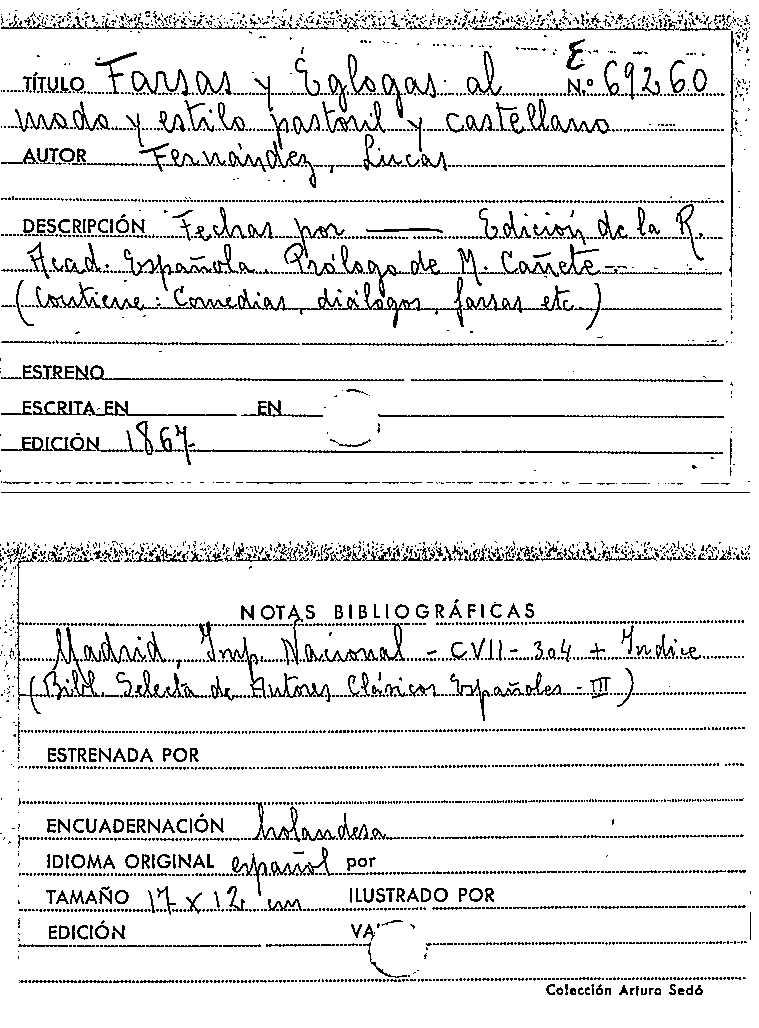 E
TÍTULO Farsas y Églogas al N.º 69260
modo y estilo pastoril y castellano
AUTOR Fernández, Lucas
DESCRIPCIÓN Fechas por —— Edición de la R.
Acad. Española. Prólogo de M. Cañete—
(Contiene: Comedias, diálogos, farsas etc.)
ESTRENO
ESCRITA EN EN
EDICIÓN 1867
NOTAS BIBLIOGRÁFICAS
Madrid, Imp. Nacional - CVII - 304 + Indice
(Bibl. Selecta de Autores Clásicos Españoles - III)
ESTRENADA POR
ENCUADERNACIÓN holandesa
IDIOMA ORIGINAL español por
TAMAÑO 17 x 12 cm ILUSTRADO POR
EDICIÓN VA
Colección Arturo Sedó